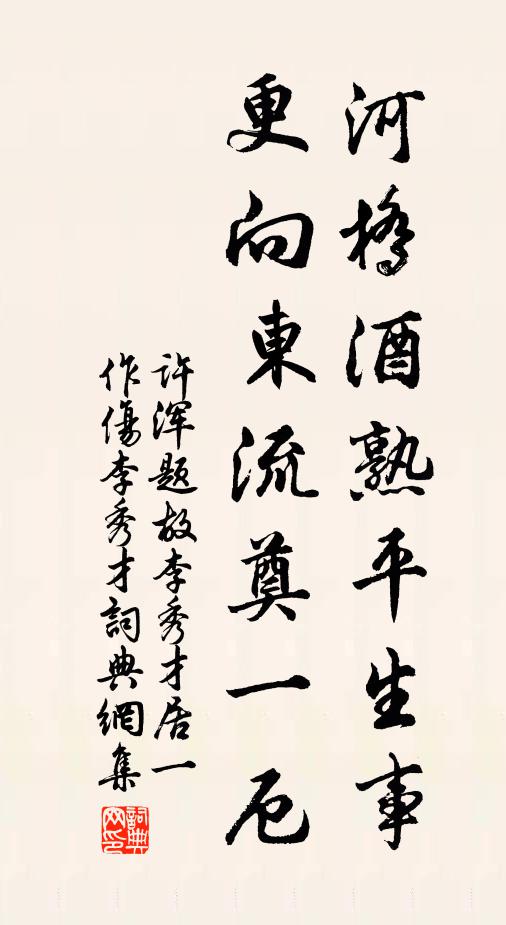 河橋酒熟平生事
更向東流奠一卮
許渾題故李秀才居一
作傷李秀才詞典網集
詞典网印